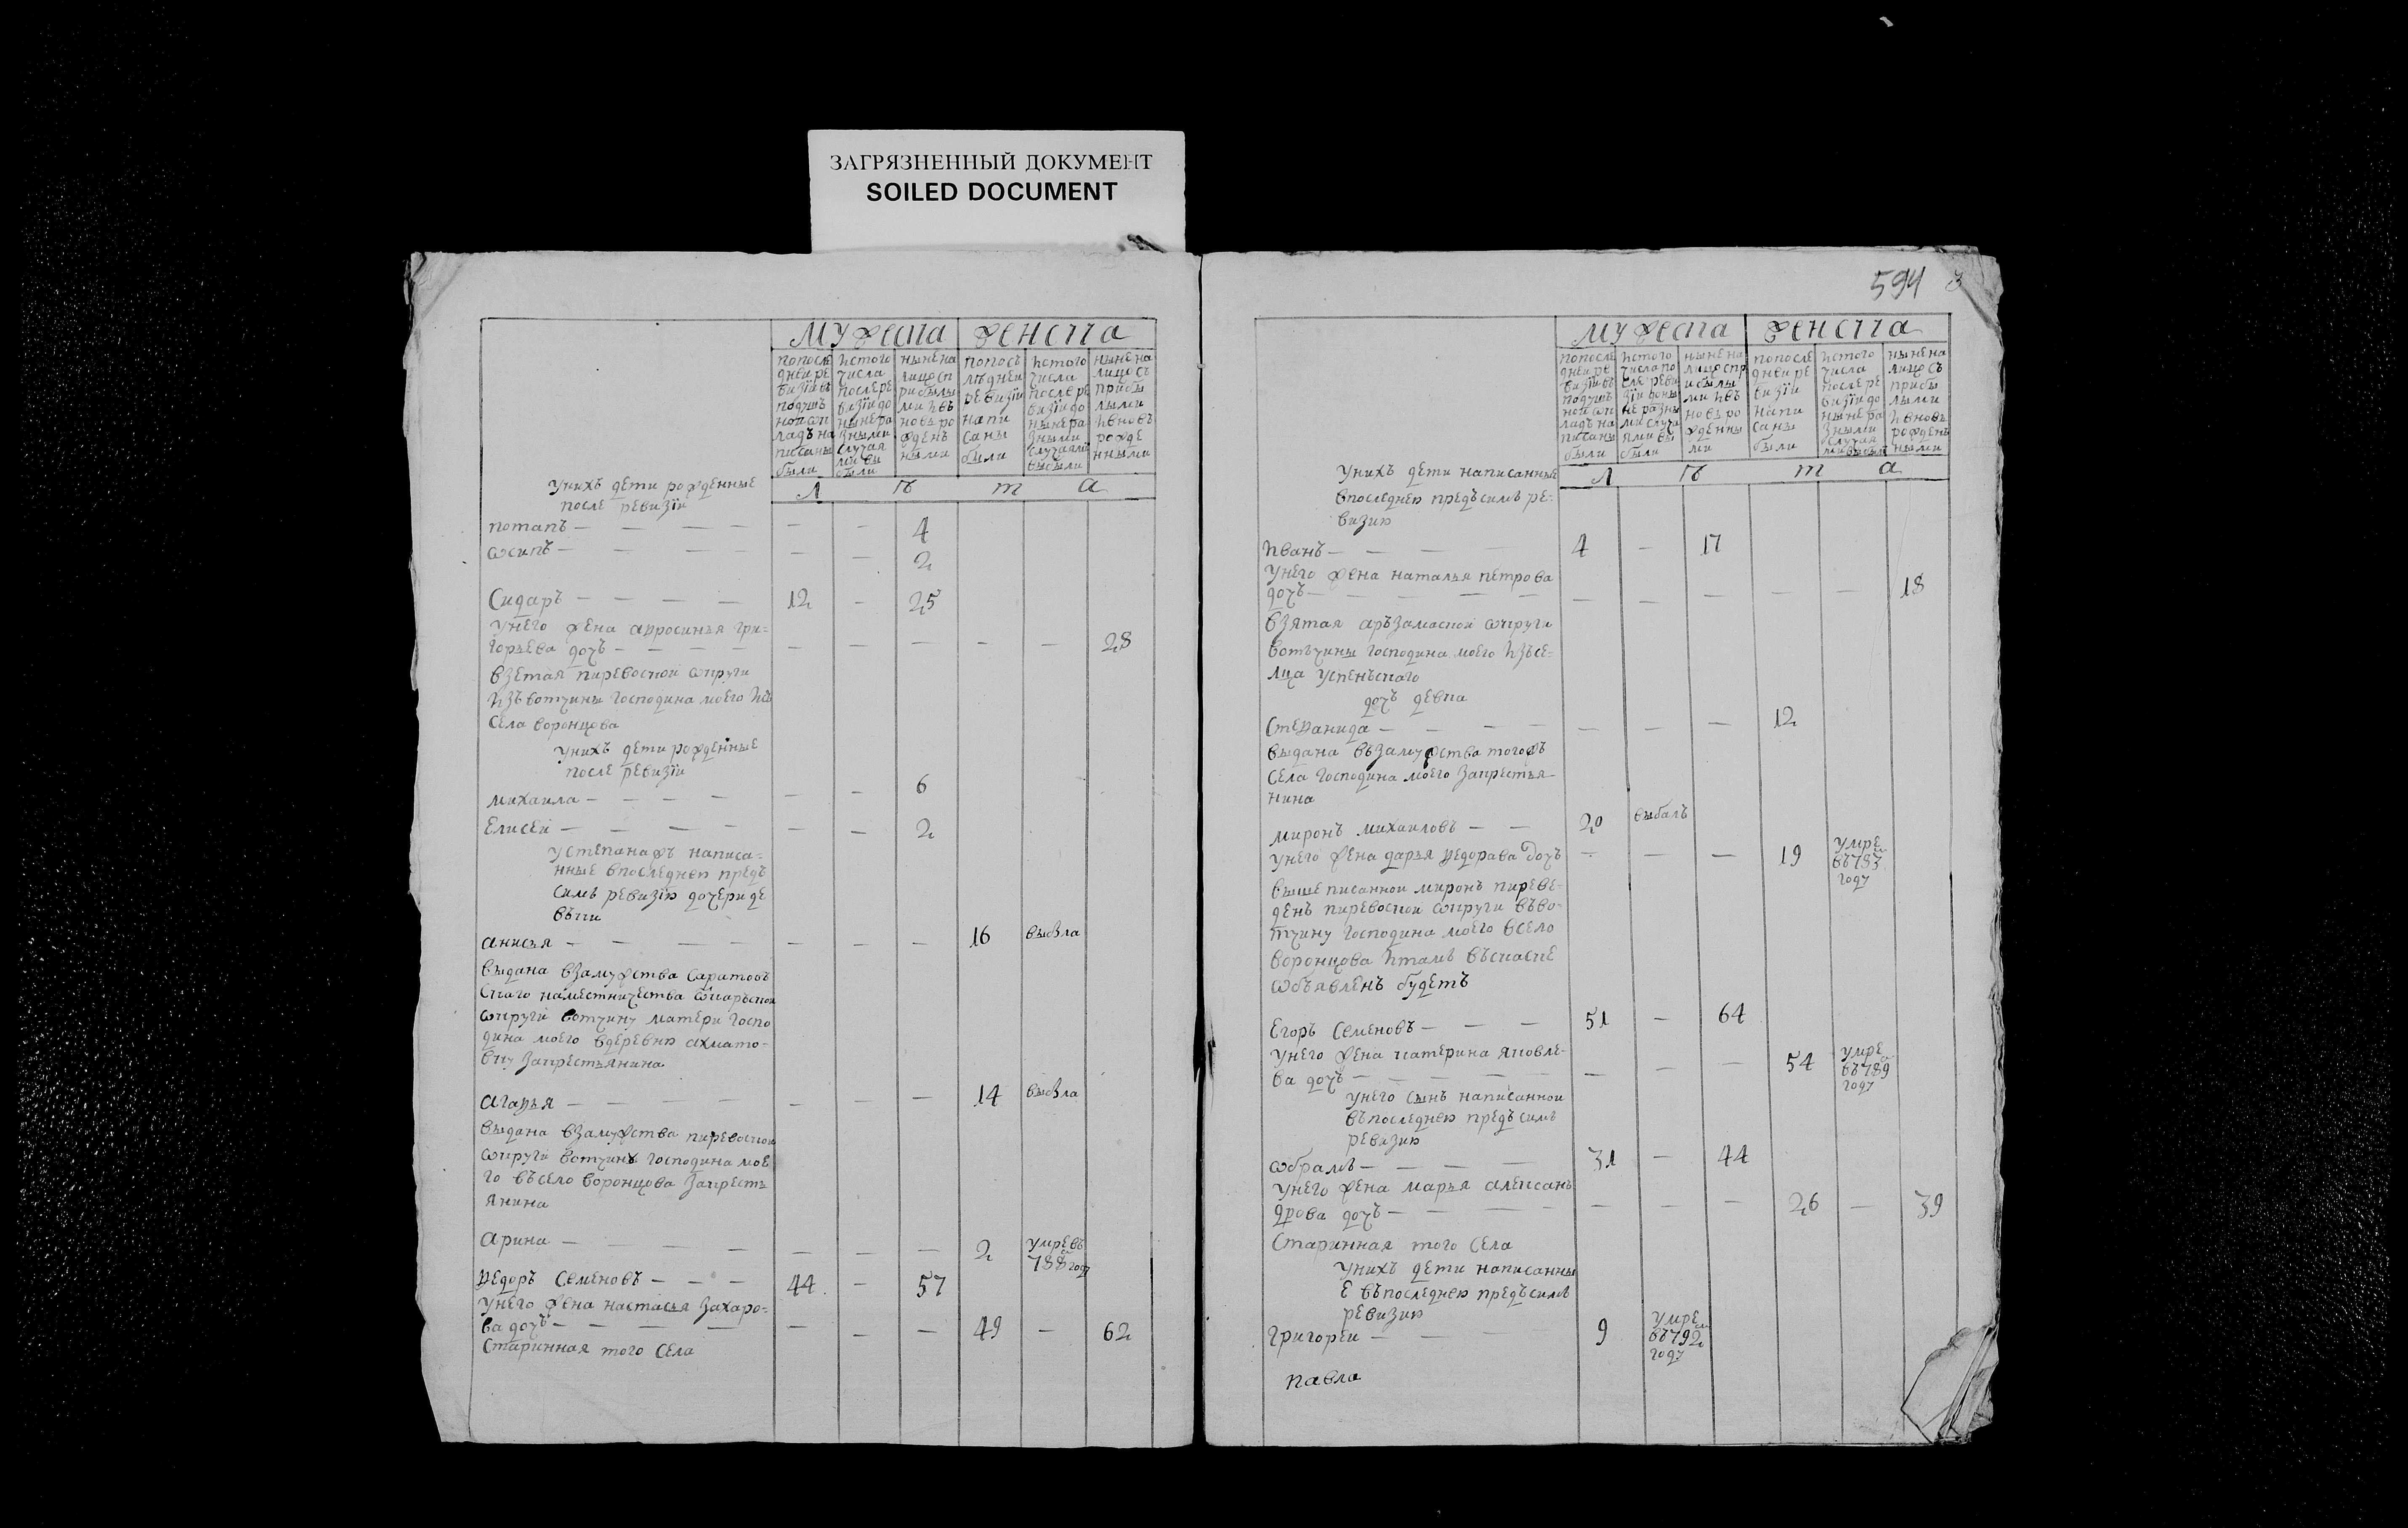 ЗАГРЯЗНЕННЫЙ ДОКУМЕНТ
SOILED DOCUMENT
мужеска женска
попосле дней ревизiи въ подушной окладъ написаны были
изтого числа после ревизiи до ныне разными случаями выбыли
ныне на лицо с прибылыми и вновь рожденъными
попосъледней ревизiи написаны были
изтого числа после ревизiи до ныне разными случаями выбыли
ныне на лицо съ прибылыми и вновъ рожденными
л ѣ т а
унихъ дети рожденные
после ревизiи
потапъ — — — — — — 4
осипъ — — — — — — 2
Сидаръ — — — — 12 — 25
унего жена афросинья гри=
горьева дочь — — — — — — — — — 28
взетая пиревоской округи
изъ вотчины господина моего изъ
села воронцова
унихъ дети рожденные
после ревизiи
михаила — — — — — — 6
Елисей — — — — — — 2
устепана жъ написа=
нные впоследнею предъ
симъ ревизiю дочери де
въки
анисья — — — — — — — 16 выбла
выдана взамужства саратовъ
скаго наместничества
округи вотчину матери госпо
дина моего вдеревню ахмато=
вку закрестьянина
агафья — — — — — — — 14 выбла
выдана взамужства пиревоской
округи вотчину господина мое
го въсело воронцова закресть
янина
арина — — — — — — — 2 умре въ 788 году
федоръ Семеновъ — — — 44 — 57
унего жена настасья захаро=
ва дочь — — — — — — — 49 — 62
Старинная того села
594
3
мужеска женска
попосле дней ревизiи въ подушъной окладъ написаны были
изтого числа после ревизiи до ныне разными случаями выбыли
ныне на лицо с прибылыми и вновь рожденными
попосле дней ревизiи написаны были
изтого числа после ревизiи до ныне разными случаями выбыли
ныне на лицо съ прибылыми и вновь рожденъными
л ѣ т а
унихъ дети написанные
впоследнею предъ симъ ре=
визию
иванъ — — — — 4 — 17
унего жена наталья петрова
дочь — — — — — — — — — 18
взятая аръзамаской округи
вотъчины господина моего изъсе=
лца успенъскаго
дочь девка
стефанида — — — — — — — 12
выдана възамужства тогожъ
села господина моего закрестья
нина
миронъ михаиловъ — — 20 выбалъ
унего жена дарья федорава дочь — — — 19 умре въ 783 году
вышеписанной миронъ пиреве=
денъ пиревоской округи въво=
тчину господина моего всело
воронцова итамъ въскаске
объявленъ будетъ
Егоръ Семеновъ — — — 51 — 64
унего жена катерина яковле=
ва дочь — — — — — — — 54 умре въ 789 году
унего сынъ написанной
въпоследнею предъ симъ
ревизию
обрамъ — — — — 31 — 44
унего жена марья алексанъ
дрова дочь — — — — — — — 26 — 39
Старинная того села
унихъ дети написанны
е въпоследнею предъ симъ
ревизию
григорей — — — 9 умре въ 792 году
павла